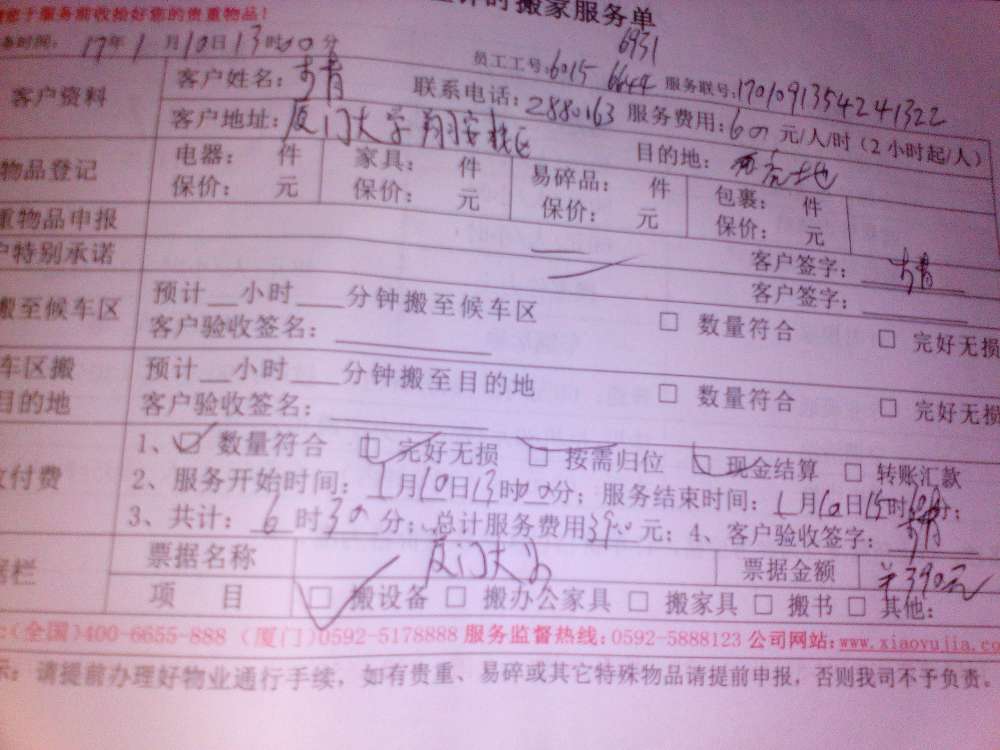 您于服务前收拾好您的贵重物品！
计时搬家服务单
务时间： 17年1月10日13时00分
6931
员工工号：6015 6644 服务联号：1701091354241322
客户资料 客户姓名： 联系电话：2880163 服务费用：60元/人/时（2小时起/人）
客户地址：厦门大学翔安校区 目的地：
物品登记 电器： 件 家具： 件 易碎品： 件 包裹： 件
保价： 元 保价： 元 保价： 元 保价： 元
重物品申报 客户签字：
户特别承诺 客户签字：
搬至候车区 预计__小时___分钟搬至候车区 □ 数量符合 □ 完好无损
客户验收签名：
车区搬目的地 预计__小时___分钟搬至目的地 □ 数量符合 □ 完好无损
客户验收签名：
付费 1、☑ 数量符合 ☑ 完好无损 ☑ 按需归位 ☑ 现金结算 □ 转账汇款
2、服务开始时间：1月10日13时00分；服务结束时间：1月10日15时10分；
3、共计：6时30分；总计服务费用390元；4、客户验收签字：
据栏 票据名称 厦门大学 票据金额 ¥390元
项 目 ☑ 搬设备 □ 搬办公家具 □ 搬家具 □ 搬书 □ 其他：
(全国)400-6655-888 (厦门)0592-5178888 服务监督热线：0592-5888123 公司网站：www.xiaoyujia.co
示：请提前办理好物业通行手续，如有贵重、易碎或其它特殊物品请提前申报，否则我司不予负责。